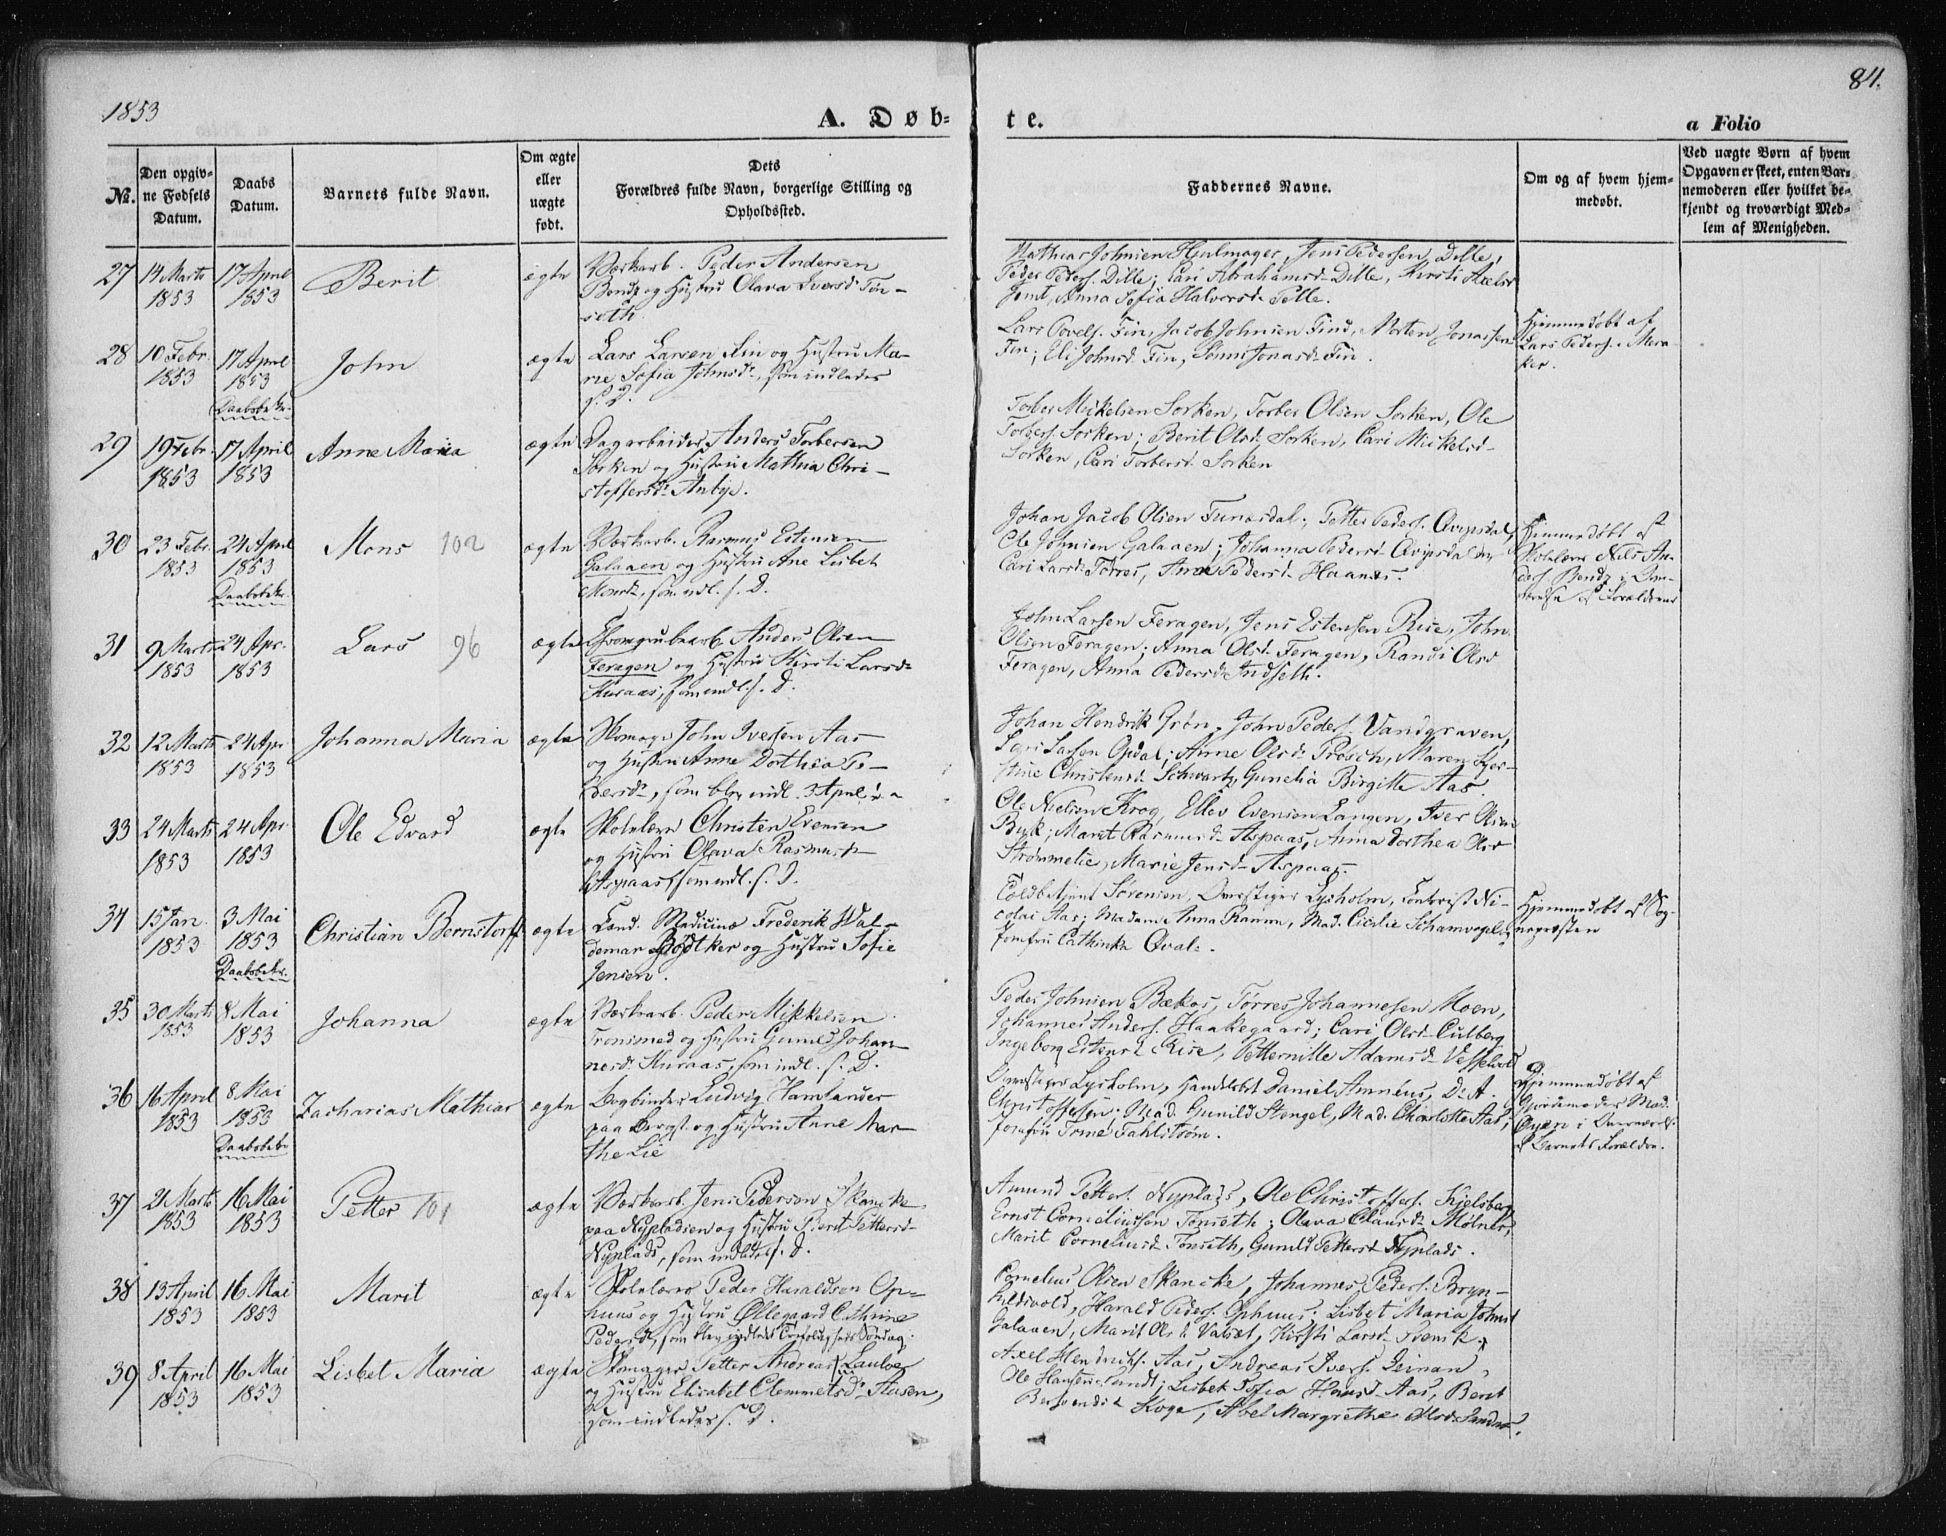 1853
A. Døb-
te.
84.
a Folio
No.
Den opgiv-
ne Fødsels
Datum.
Daabs
Datum.
Barnets fulde Navn.
Om ægte
eller
uægte
født.
Dets
Forældres fulde Navn, borgerlige Stilling og
Opholdssted.
Faddernes Navne.
Om og af hvem hjem-
medøbt.
Ved uægte Børn af hvem
Opgaven er skeet, enten Bar-
nemoderen eller hvilket be-
kjendt og troværdigt Med-
lem af Menigheden.
27
14 Marts
1853
17 April
1853
Berit
ægte
Peder Andersen
og Hustru Olava Iversd. Tøn-
seth
Jens Pedersen Dille,
Peder Peders. Dille; Cari Abrahamsd. Dille, Kirsti
Anna Sofia Halvorsd.
28
10 Febr.
1853
17 April
1853
Daabsbekr.
John
ægte
Lars Larsen Fin og Hustru Ma-
rie Sofia Johnsdr., som indledes
s. D.
Lars Povels. Fin, Jacob Johnsen Find, Morten Jonassen
Fin; Eli Johnsd. Fin, Jonasd. Fin.
Hjemmedøbt af
Lars Peders. i Mera-
ker.
29
19 Febr.
1853
17 April
1853
Anne Maria
ægte
Dagarbeider Anders Torbersen
Sorken og Hustru Mathia Chri-
stoffersdr.
Torber Mickelsen Sorken, Torber Olsen Sorken, Ole
Sorken; Berit Olsd. Sorken, Cari Mickelsd.
Sorken, Cari Torbersd. Sorken
30
23 Febr.
1853
24 April
1853
Daabsbekr.
Mons 102
ægte
Rasmus Estensen
Galaaen og Hustru Ane Lisbet
Monsdr., som indl. s. D.
Johan Jacob Olsen Funesdal, Petter Peders.
Ole Johnsen Galaaen; Johanna Pedersd.
Cari Larsd. Torres, Ane Pedersd. Haanes.
Hjemmedøbt af
Skolelærer Nils An-
ders.
af Forældrene
31
9 Marts
1853
24 Apr.
1853
Lars 96
ægte
Anders Olsen
Feragen og Hustru Kirsti Larsd.
Kuraas, som indl. s. D.
John Larsen Feragen, Jens Estensen Rise, John
Olsen Feragen; Anna Olsd. Feragen, Randi Olsd
Feragen, Anna Pedersd. Indseth.
32
12 Marts
1853
24 Apr
1853
Johanna Maria
ægte
Skomager John Iversen Aas
og Hustru Anne Dorthea Pe-
dersdr., som blev indl. 3 April
Johan Hendrik Grøn, John Peders. Vandgraven,
Larsen Opdal; Anne Olsd. Prøsch, Maren Kjer-
stine Christensd. Schwartz, Gunelia Birgitte Aas.
33
24 Marts
1853
24 Apr.
1853
Ole Edvard
ægte
Skolelærer Christen Evensen
og Hustru Olava Rasmusd.
Aspaas, som indl. s. D.
Ole Nielsen Krog, Ellev Evensen Langen, Iver Olsen
Buk; Marit Rasmusd. Aspaas, Anna Dorthea Olsd
Strømmelie, Marie Jensd. Aspaas.
34
15 Jan.
1853
3 Mai
1853
Daabsbekr.
Christian Bernstorff
ægte
Cand. Medicinæ Frederik Wal-
demar Bødtker og Hustru Sofie
Jensen.
Toldbetjent Sørensen, Overstiger Lysholm, Ni-
colai Aas; Madame Anna Ramm, Mad. Cecilie
Jomfru Cathinka Qval.
Hjemmedøbt af Sog-
nepræsten
35
30 Marts
1853
8 Mai
1853
Johanna
ægte
Peder Mikkelsen
Tronsmed og Hustru Gunild Johan-
nesd. Kuraas, som indl. s. D.
Peder Johnsen Bækos, Tørres Johannesen Moen,
Johannes Anders. Haakegaard; Cari Olsd. Culberg
Ingeborg Estensd. Rise, Petternille Adamsd. Vessel
36
16 April
1853
8 Mai
1853
Daabsbekr.
Zacharias Mathias
ægte
Bogbinder Ludvig Hamlander
paa Bergst. og Hustru Anne Mar-
the Lie
Overstiger Lysholm, Handelsbet. Daniel Amnéus, Do. A.
Christoffersen; Mad. Gunild Stengel, Mad. Charlotte Aas,
Jomfru Trine Fahlstrøm.
Hjemmedøbt af
Gjordemoder Mad.
Øyen i Overværelse
af Barnets Forældre.
37
21 Marts
1853
16 Mai
1853
Petter 101
ægte
Jens Pedersen Skancke
paa Nypladsen og Hustru Berit Pettersd.
Nyplads, som indledes s. D.
Amund Petters. Nyplads, Ole Christoffers. Kjelsberg
Ernst Corneliussen Tonseth; Olava Clausd. Mølner,
Marit Corneliusd. Tonseth, Gunild Pettersd. Nyplads.
38
13 April
1853
16 Mai
1853
Marit
ægte
Skolelærer Peder Haraldsen Op-
huus og Hustru Øllegaard Cathrine
Pedersd., som blev indledet Trefoldigheds Søndag.
Cornelius Olsen Skancke, Johannes Peders. Bryn-
hildsvold, Harald Peders. Ophuus; Lisbet Maria Johnsd
Galaaen, Marit Olsd. Valset, Kirsti Larsd.
39
8 April
1853
16 Mai
1853
Lisbet Maria
ægte
Skomager Petter Andreas
og Hustru Elisabet Clemmetsdr. Aasen,
som indledes s. D.
Axel Hendrichs. Aas, Andreas Ivers.
Ole Hansen Sundt; Lisbet Sofia Hansd. Aas, Berit
Koge, Abel Margrethe Olsd. Sandnes.